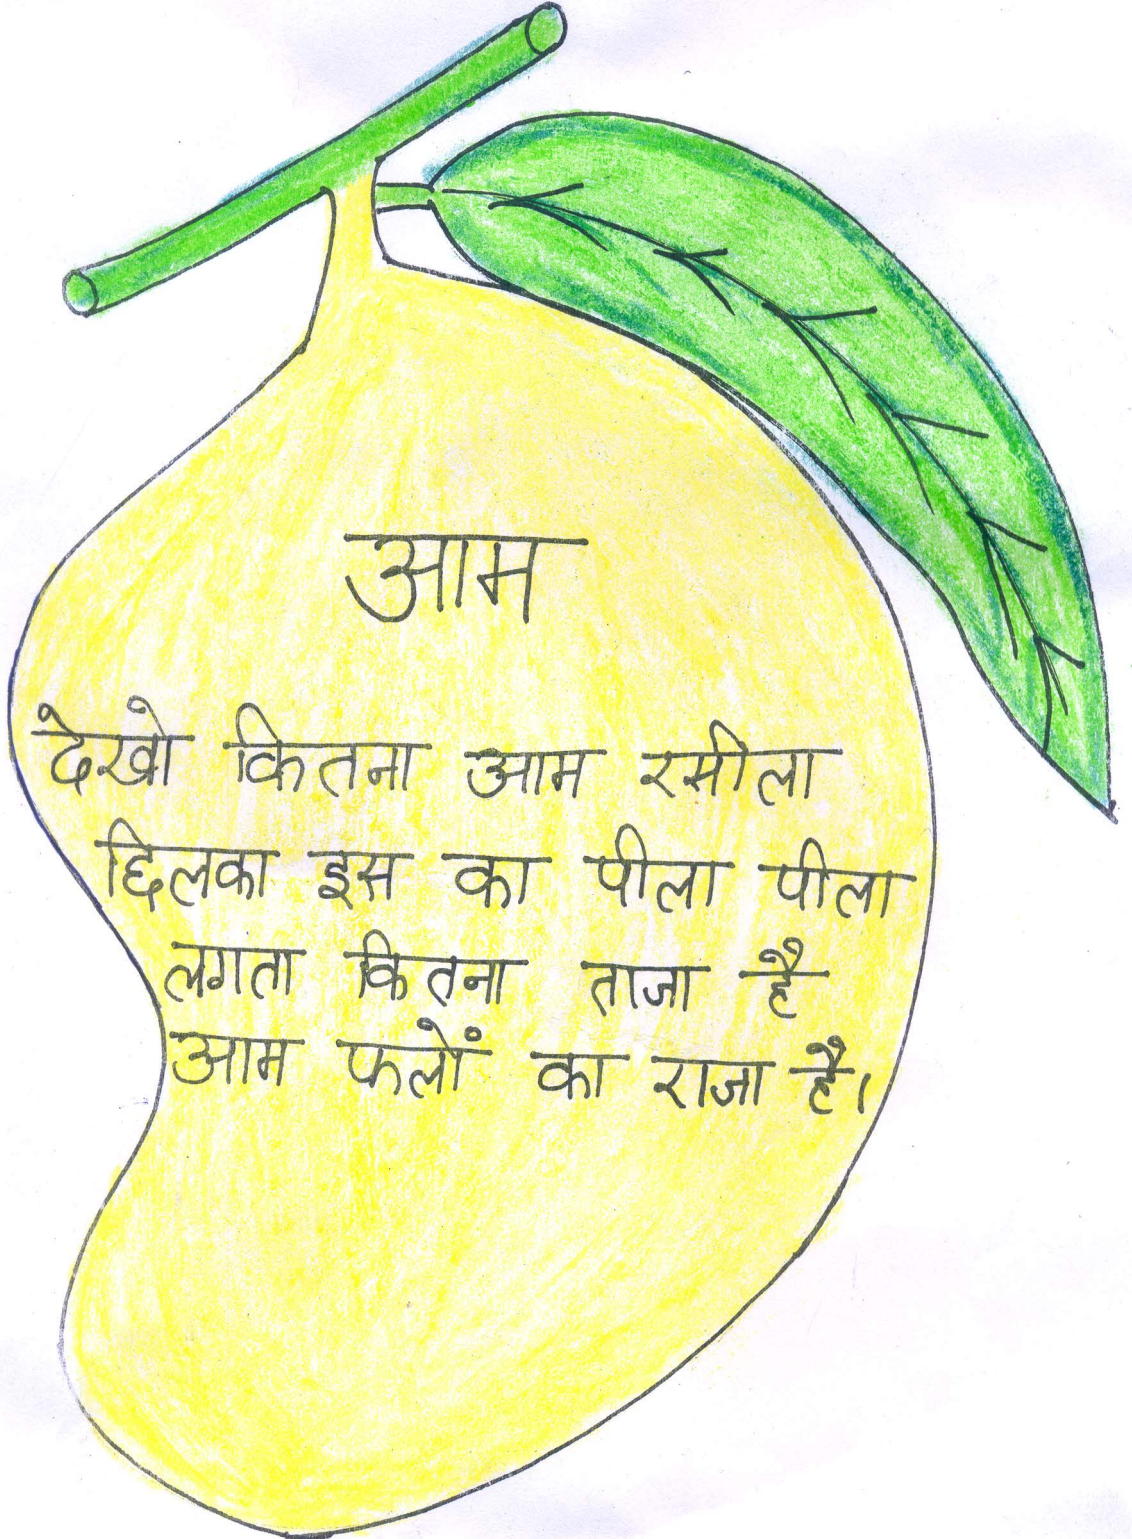 आम
देखो कितना आम रसीला
छिलका इस का पीला पीला
लगता कितना ताजा है
आम फलों का राजा है।